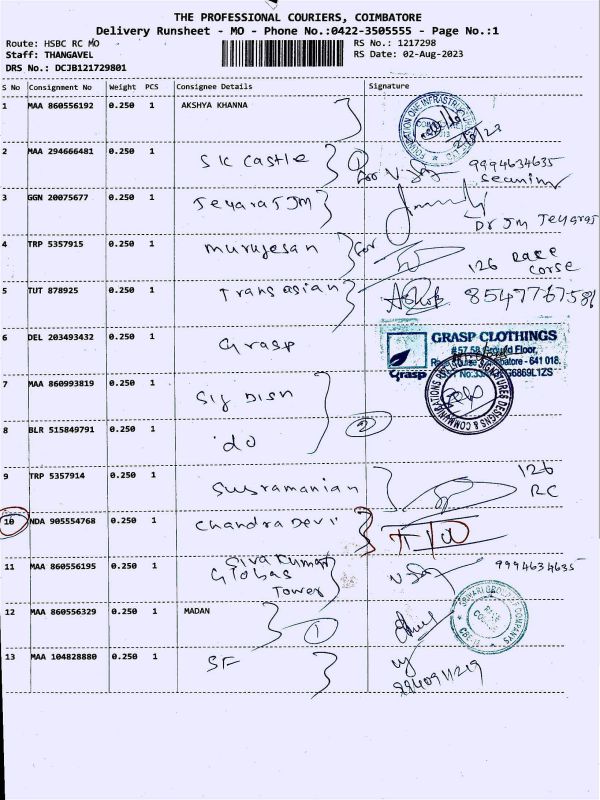 THE PROFESSIONAL COURIERS, COIMBATORE
Delivery Runsheet - MO - Phone No.:0422-3505555 - Page No.:1
Route: HSBC RC MO
Staff: THANGAVEL
DRS No.: DCJB121729801
RS No.: 1217298
RS Date: 02-Aug-2023
S No Consignment No Weight PCS Consignee Details Signature
1 MAA 860556192 0.250 1 AKSHYA KHANNA
2 MAA 294666481 0.250 1 SK Castle 1 for 9994634635
3 GGN 20075677 0.250 1 Jeyaraj JM
Dr JM Jeyaraj
4 TRP 5357915 0.250 1 Murugesan for
126 Race
corse
5 TUT 878925 0.250 1 Transasian Ashok
6 DEL 203493432 0.250 1 Grasp
GRASP CLOTHINGS
#57,58, Ground Floor,
641 018.
Grasp
7 MAA 860993819 0.250 1 Sig Disn
SIGNATURES DESIGNS & COMMUNICATIONS
8 BLR 515849791 0.250 1 do 2
9 TRP 5357914 0.250 1 Susramanian
126
RC
10 NDA 905554768 0.250 1 Chandra Devi
11 MAA 860556195 0.250 1 Sivakumar
Globas
Tower
9994634635
12 MAA 860556329 0.250 1 MADAN
1
GROUP OF COMPANIES
13 MAA 104828880 0.250 1 SF